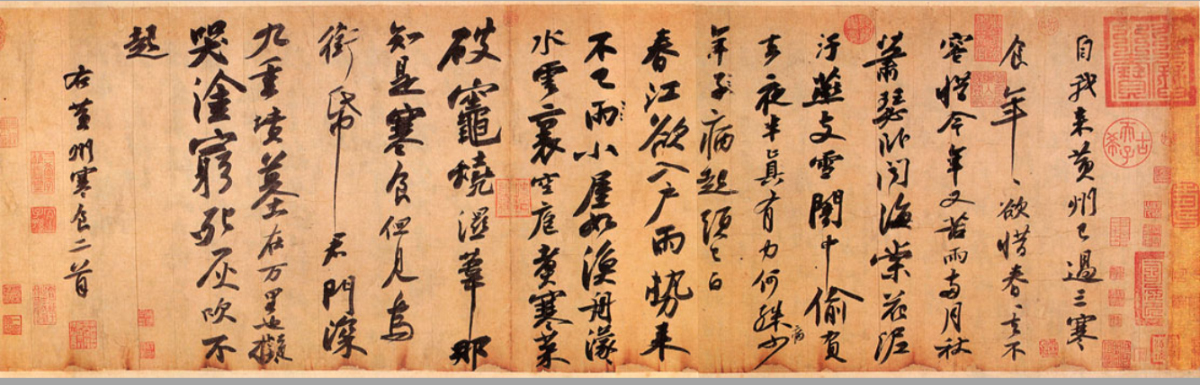 自我来黄州已過三寒
食年〻欲惜春〻去不
容惜今年又苦雨兩月秋
蕭瑟卧聞海棠花泥
汙燕支雪闇中偷負
去夜半真有力何殊少
病
年子病起頭已白
春江欲入户雨勢来
不已雨小屋如漁舟濛〻
水雲裏空庖煮寒菜
破竈燒濕葦那
知是寒食但見烏
銜帋君門深
九重墳墓在万里也擬
哭塗窮死灰吹不
起
右黄州寒食二首
古希天子